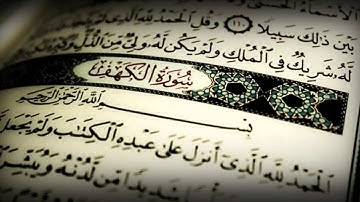 الأسماء الحسنى
بين ذلك سبيلا ١١٠ وقل الحمد لله
له شريك في الملك ولم يكن له ولي من الذل وكبره
سورة الكهف
بسم الله الرحمن الرحيم
الحمد لله الذي أنزل على عبده الكتاب ولم يجعل
شديدا من لدنه ويبشر